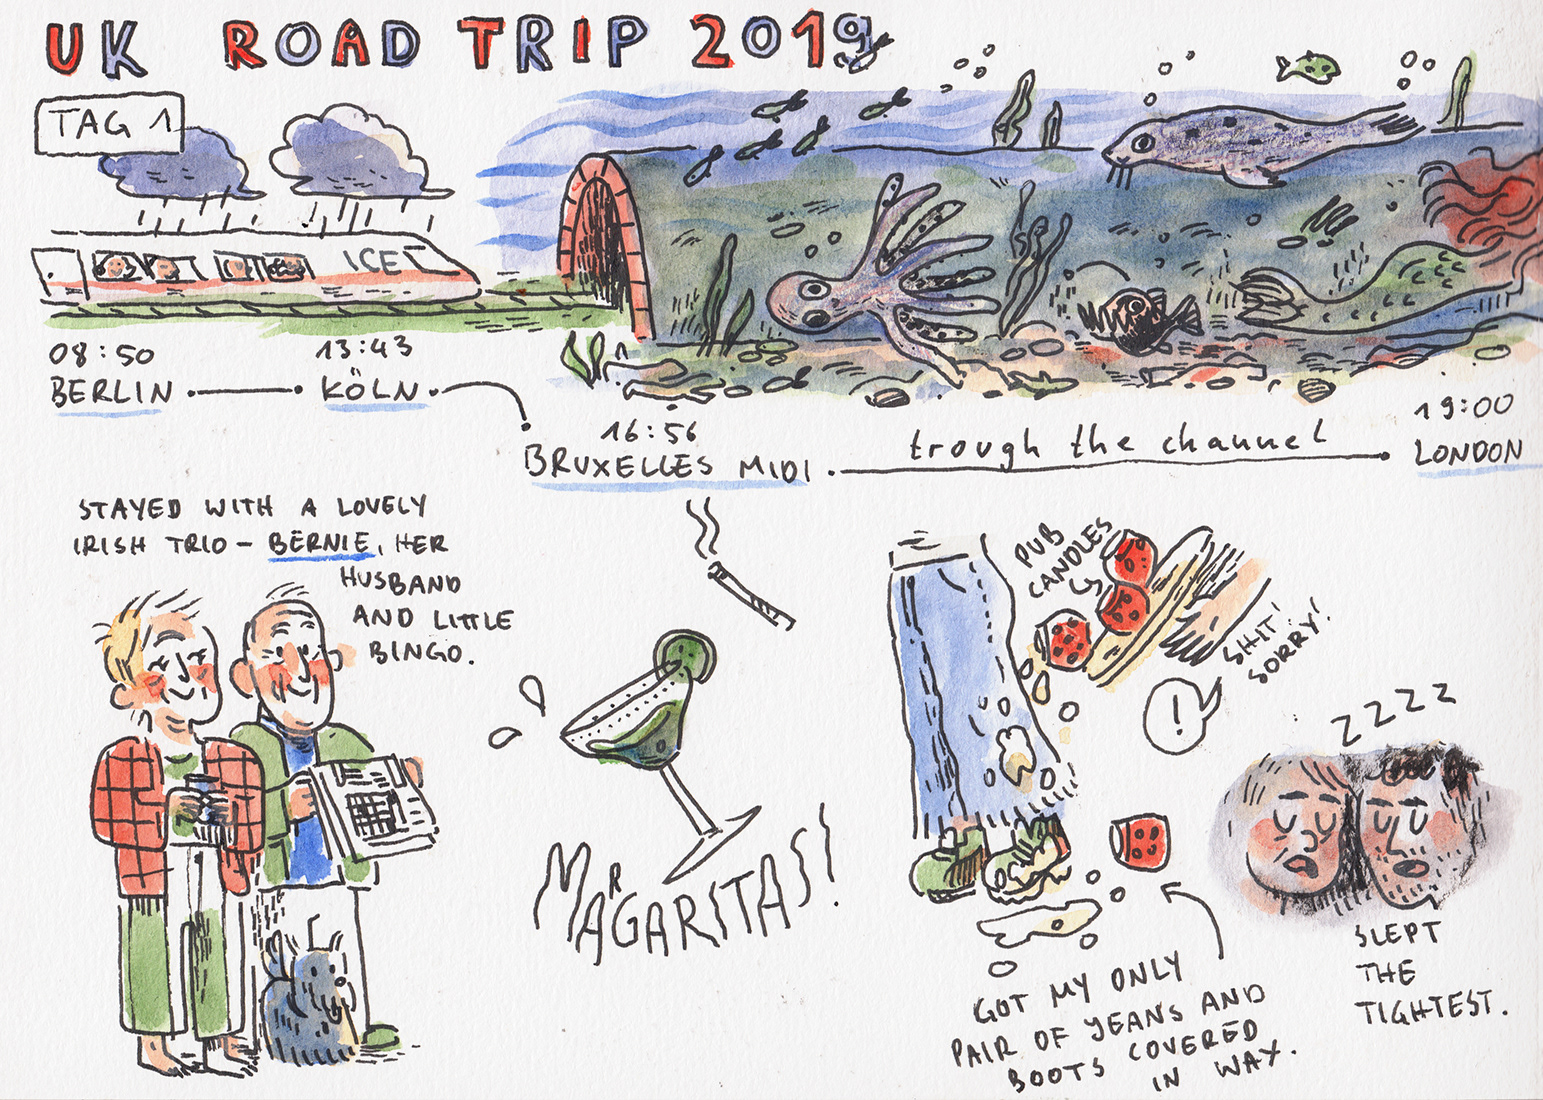 UK ROAD TRIP 2019
TAG 1
ICE
08:50
BERLIN
13:43
KÖLN
16:56
BRUXELLES MIDI
trough the channel
19:00
LONDON
STAYED WITH A LOVELY
IRISH TRIO – BERNIE, HER
HUSBAND
AND LITTLE
BINGO.
MARGARITAS!
PUB
CANDLES
SHIT!
SORRY!
!
GOT MY ONLY
PAIR OF YEANS AND
BOOTS COVERED
IN WAX.
ZZZZ
SLEPT
THE
TIGHTEST.